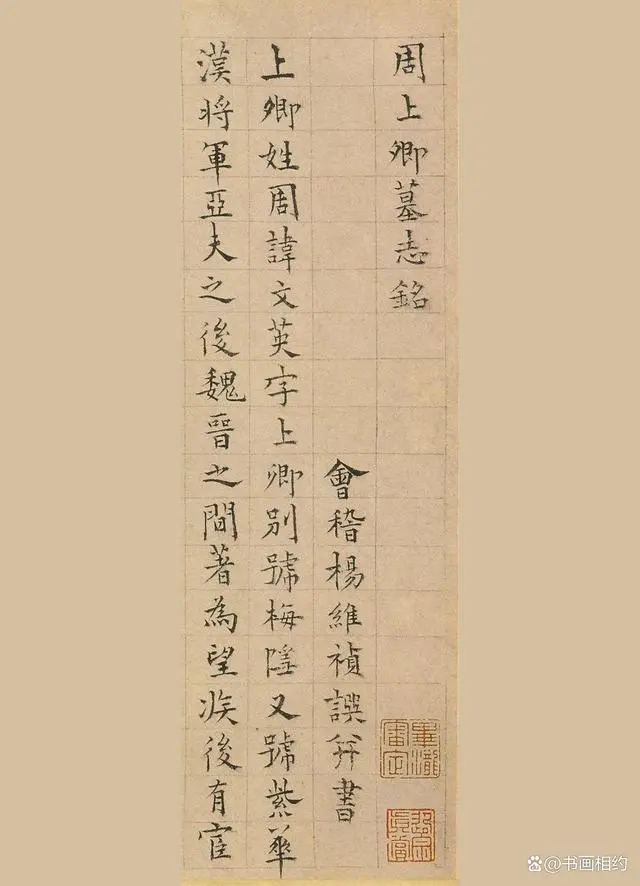 周上卿墓志銘
會稽楊維禎譔并書
上卿姓周諱文英字上卿別號梅隱又號紫華
漢將軍亞夫之後魏晉之間著為望族後有宦
畢瀧審定
@书画相约